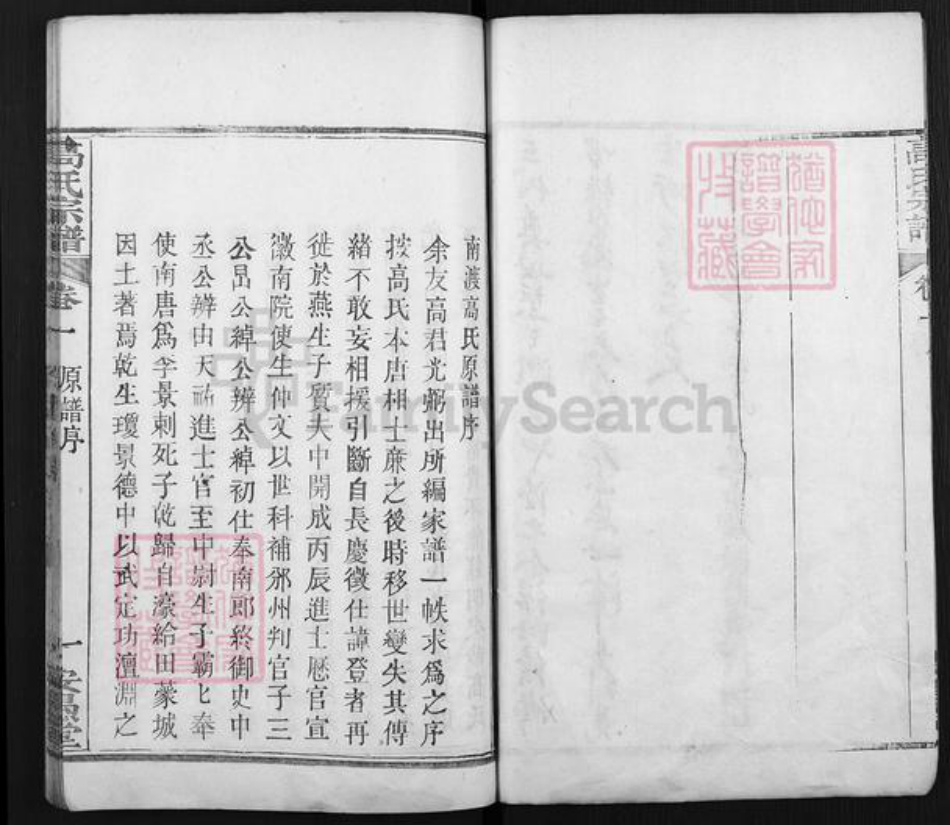 南渡高氏原譜序
余友高君光弼出所編家譜一帙求爲之序
按高氏本唐相士廉之後時移世變失其傳
緒不敢妄相援引斷自長慶徵仕諱登者再
徙於燕生子質夫中開成丙辰進士歷官宣
徽南院使生仲文以世科補邠州判官子三
公昺公綽公辨公綽初仕奉南郎終御史中
丞公辨由天祐進士官至中尉生子霸七奉
使南唐爲李景剌死子乾歸自濠給田蒙城
因土著焉乾生瓊景德中以武定功澶淵之
高氏宗譜
卷一
原譜序
一
高氏宗譜
猶他家譜學會收藏
FamilySearch